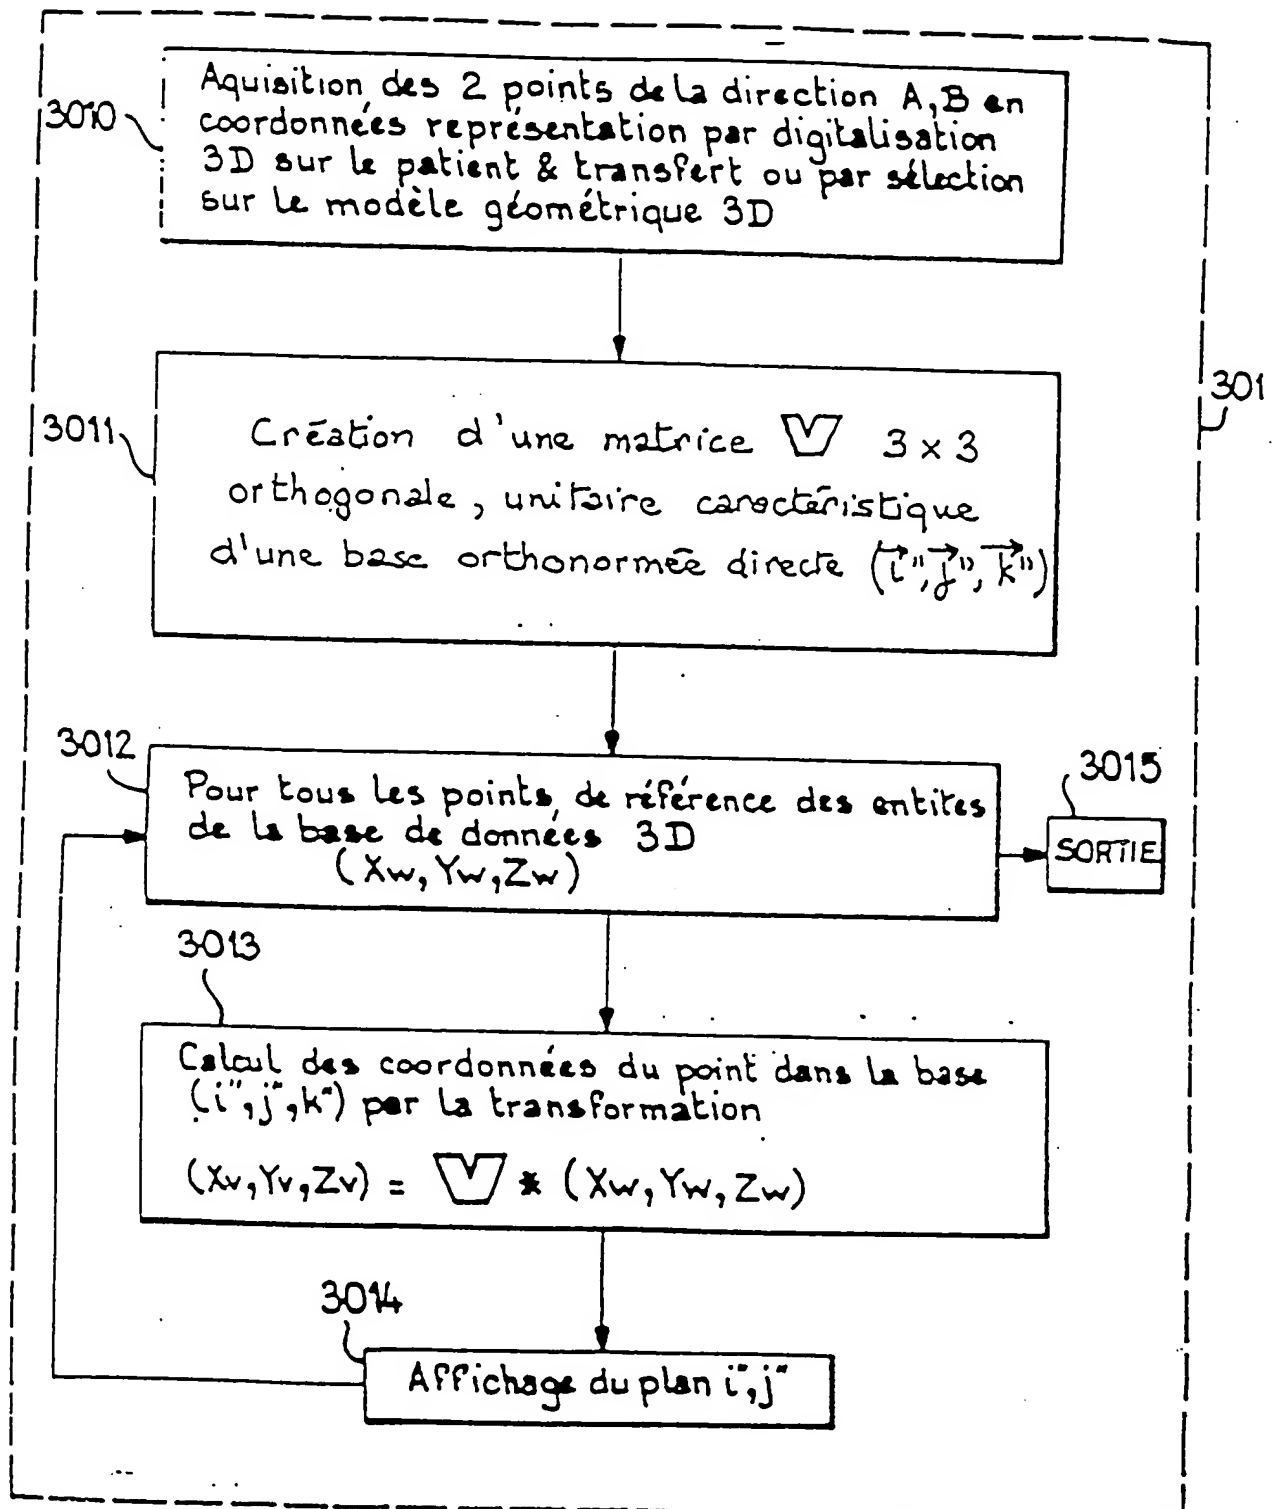 3010
Aquisition des 2 points de la direction A,B en
coordonnées représentation par digitalisation
3D sur le patient & transfert ou par sélection
sur le modèle géométrique 3D
301
3011
Création d'une matrice V 3 x 3
orthogonale, unitaire caractéristique
d'une base orthonormée directe (i", j", k")
3012
Pour tous les points de référence des entites
de la base de données 3D
(Xw, Yw, Zw)
3015
SORTIE
3013
Calcul des coordonnées du point dans la base
(i", j", k") par la transformation
(Xv, Yv, Zv) = V * (Xw, Yw, Zw)
3014
Affichage du plan i", j"